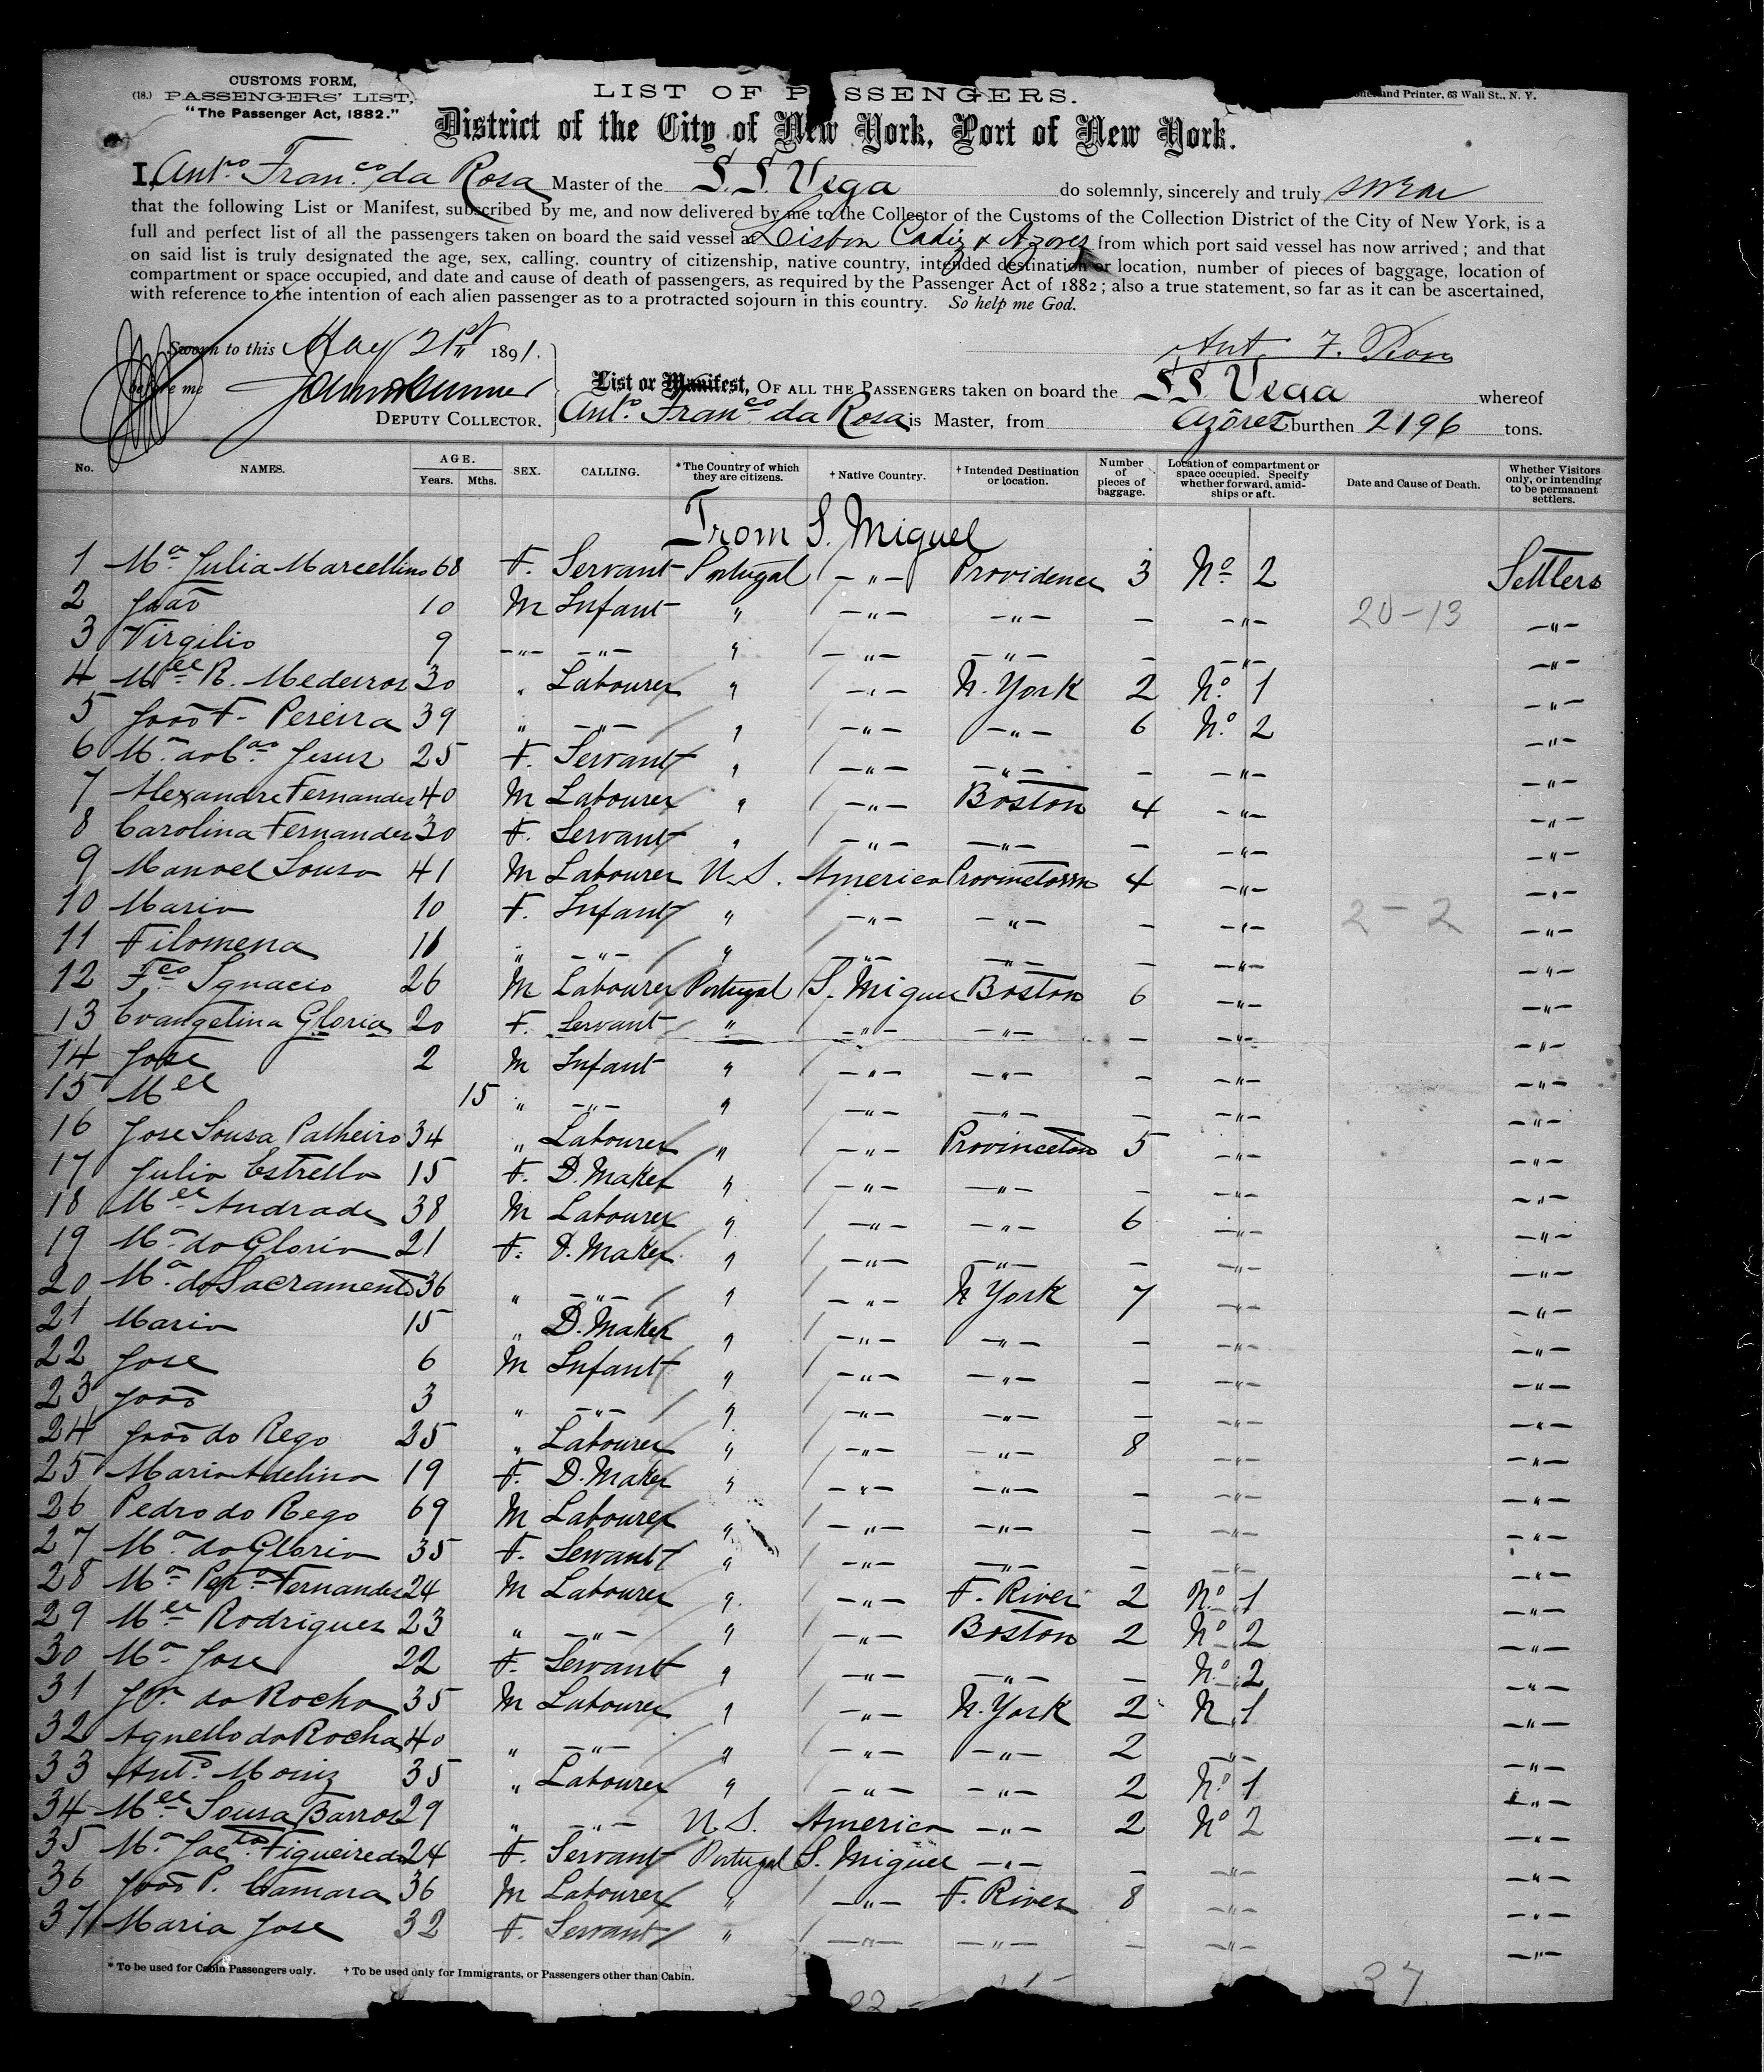 CUSTOMS FORM,
(18.) PASSENGERS' LIST,
"The Passenger Act, 1882."
LIST OF PASSENGERS.
and Printer, 63 Wall St., N. Y.
District of the City of New York, Port of New York.
I, Ant.o Fran.co da Rosa Master of the S.S. Vega do solemnly, sincerely and truly swear
that the following List or Manifest, subscribed by me, and now delivered by me to the Collector of the Customs of the Collection District of the City of New York, is a
full and perfect list of all the passengers taken on board the said vessel at Lisbon Cadiz & Azores from which port said vessel has now arrived; and that
on said list is truly designated the age, sex, calling, country of citizenship, native country, intended destination or location, number of pieces of baggage, location of
compartment or space occupied, and date and cause of death of passengers, as required by the Passenger Act of 1882; also a true statement, so far as it can be ascertained,
with reference to the intention of each alien passenger as to a protracted sojourn in this country. So help me God.
Sworn to this May 21st 1891.
Ant. F. Rosa
before me
DEPUTY COLLECTOR.
List or Manifest, OF ALL THE PASSENGERS taken on board the SS Vega whereof
Ant.o Fran.co da Rosa is Master, from Azores burthen 2196 tons.
No. NAMES. AGE. Years. Mths. SEX. CALLING. *The Country of which they are citizens. †Native Country. †Intended Destination or location. Number of pieces of baggage. Location of compartment or space occupied. Specify whether forward, amidships or aft. Date and Cause of Death. Whether Visitors only, or intending to be permanent settlers.
From S. Miguel
1 M.a Julia Marcellino 68 F. Servant Portugal -"- Providence 3 No 2 Settlers
2 João 10 M Infant " -"- -"- - -"- 20-13 -"-
3 Virgilio 9 -"- -"- " -"- -"- - -"- -"-
4 M.el R. Medeiros 30 " Labourer " -"- N. York 2 No 1 -"-
5 João F. Pereira 39 " -"- " -"- -"- 6 No 2 -"-
6 M.a Jesus 25 F. Servant " -"- -"- - -"- -"-
7 Alexandre Fernandes 40 M Labourer " -"- Boston 4 -"- -"-
8 Carolina Fernandes 30 F. Servant " -"- -"- - -"- -"-
9 Manoel Sousa 41 M Labourer U.S. America Provincetown 4 -"- -"-
10 Maria 10 F. Infant " -"- -"- - -"- 2-2 -"-
11 Filomena 11 " -"- " -"- -"- - -"- -"-
12 F.co Ignacio 26 M Labourer Portugal S. Miguel Boston 6 -"- -"-
13 Evangelina Gloria 20 F. Servant " -"- -"- - -"- -"-
14 Jose 2 M Infant " -"- -"- - -"- -"-
15 M.el 15 " -"- " -"- -"- - -"- -"-
16 Jose Sousa Palheiro 34 " Labourer " -"- Provinceton 5 -"- -"-
17 Julia Estrella 15 F. D. Maker " -"- -"- - -"- -"-
18 M.el Andrade 38 M Labourer " -"- -"- 6 -"- -"-
19 M.a da Gloria 21 F. D. Maker " -"- -"- - -"- -"-
20 M.a do Sacramento 36 " -"- " -"- N York 7 -"- -"-
21 Maria 15 " D. Maker " -"- -"- - -"- -"-
22 Jose 6 M Infant " -"- -"- - -"- -"-
23 João 3 " -"- " -"- -"- - -"- -"-
24 João do Rego 25 " Labourer " -"- -"- 8 -"- -"-
25 Maria Adelina 19 F. D. Maker " -"- -"- - -"- -"-
26 Pedro do Rego 69 M Labourer " -"- -"- - -"- -"-
27 M.a da Gloria 35 F. Servant " -"- -"- - -"- -"-
28 M.a Fernandes 24 M Labourer " -"- F. River 2 No 1 -"-
29 M.el Rodrigues 23 " -"- " -"- Boston 2 No 2 -"-
30 M.a Jose 22 F. Servant " -"- -"- - No 2 -"-
31 da Rocha 35 M Labourer " -"- N. York 2 N 1 -"-
32 Agnello da Rocha 40 " -"- " -"- -"- 2 -"- -"-
33 Ant.o Moniz 35 " Labourer " -"- -"- 2 No 1 -"-
34 M.el Sousa Barros 29 " -"- U.S. America -"- 2 No 2 -"-
35 M.a Jac.ta Figueiredo 24 F. Servant Portugal S. Miguel -"- - -"- -"-
36 João P. Camara 36 M Labourer " -"- F. River 8 -"- -"-
37 Maria Jose 32 F. Servant " -"- -"- - -"- -"-
* To be used for Cabin Passengers only. † To be used only for Immigrants, or Passengers other than Cabin.
22 - 37